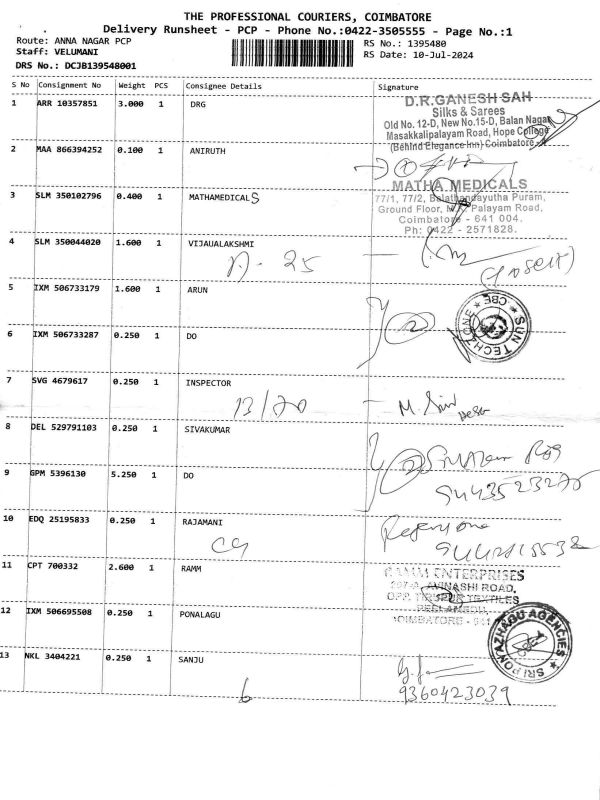 THE PROFESSIONAL COURIERS, COIMBATORE
Delivery Runsheet - PCP - Phone No.:0422-3505555 - Page No.:1
Route: ANNA NAGAR PCP
RS No.: 1395480
Staff: VELUMANI
RS Date: 10-Jul-2024
DRS No.: DCJB139548001
S No Consignment No Weight PCS Consignee Details Signature
1 ARR 10357851 3.000 1 DRG
D.R.GANESH SAH
Silks & Sarees
Old No. 12-D, New No.15-D, Balan Nagar
Masakkalipalayam Road, Hope College
(Behind Elegance Inn) Coimbatore - 4
2 MAA 866394252 0.100 1 ANIRUTH
3 SLM 350102796 0.400 1 MATHAMEDICALS
MATHA MEDICALS
77/1, 77/2, Balathandayutha Puram,
Ground Floor, M.K. Palayam Road,
Coimbatore - 641 004.
Ph: 0422 - 2571828.
4 SLM 350044020 1.600 1 VIJAUALAKSHMI
n. 25
5 IXM 506733179 1.600 1 ARUN
SUN TECHZONE * CBE *
6 IXM 506733287 0.250 1 DO
7 SVG 4679617 0.250 1 INSPECTOR
13/70
8 DEL 529791103 0.250 1 SIVAKUMAR
9 GPM 5396130 5.250 1 DO
10 EDQ 25195833 0.250 1 RAJAMANI
11 CPT 700332 2.600 1 RAMM
RAMM ENTERPRISES
AVINASHI ROAD,
OPP. TIRUPUR TEXTILES
PEELAMEDU,
COIMBATORE - 641
12 IXM 506695508 0.250 1 PONALAGU
SRI PONAZHAGU AGENCIES
13 NKL 3404221 0.250 1 SANJU
6
9360423039